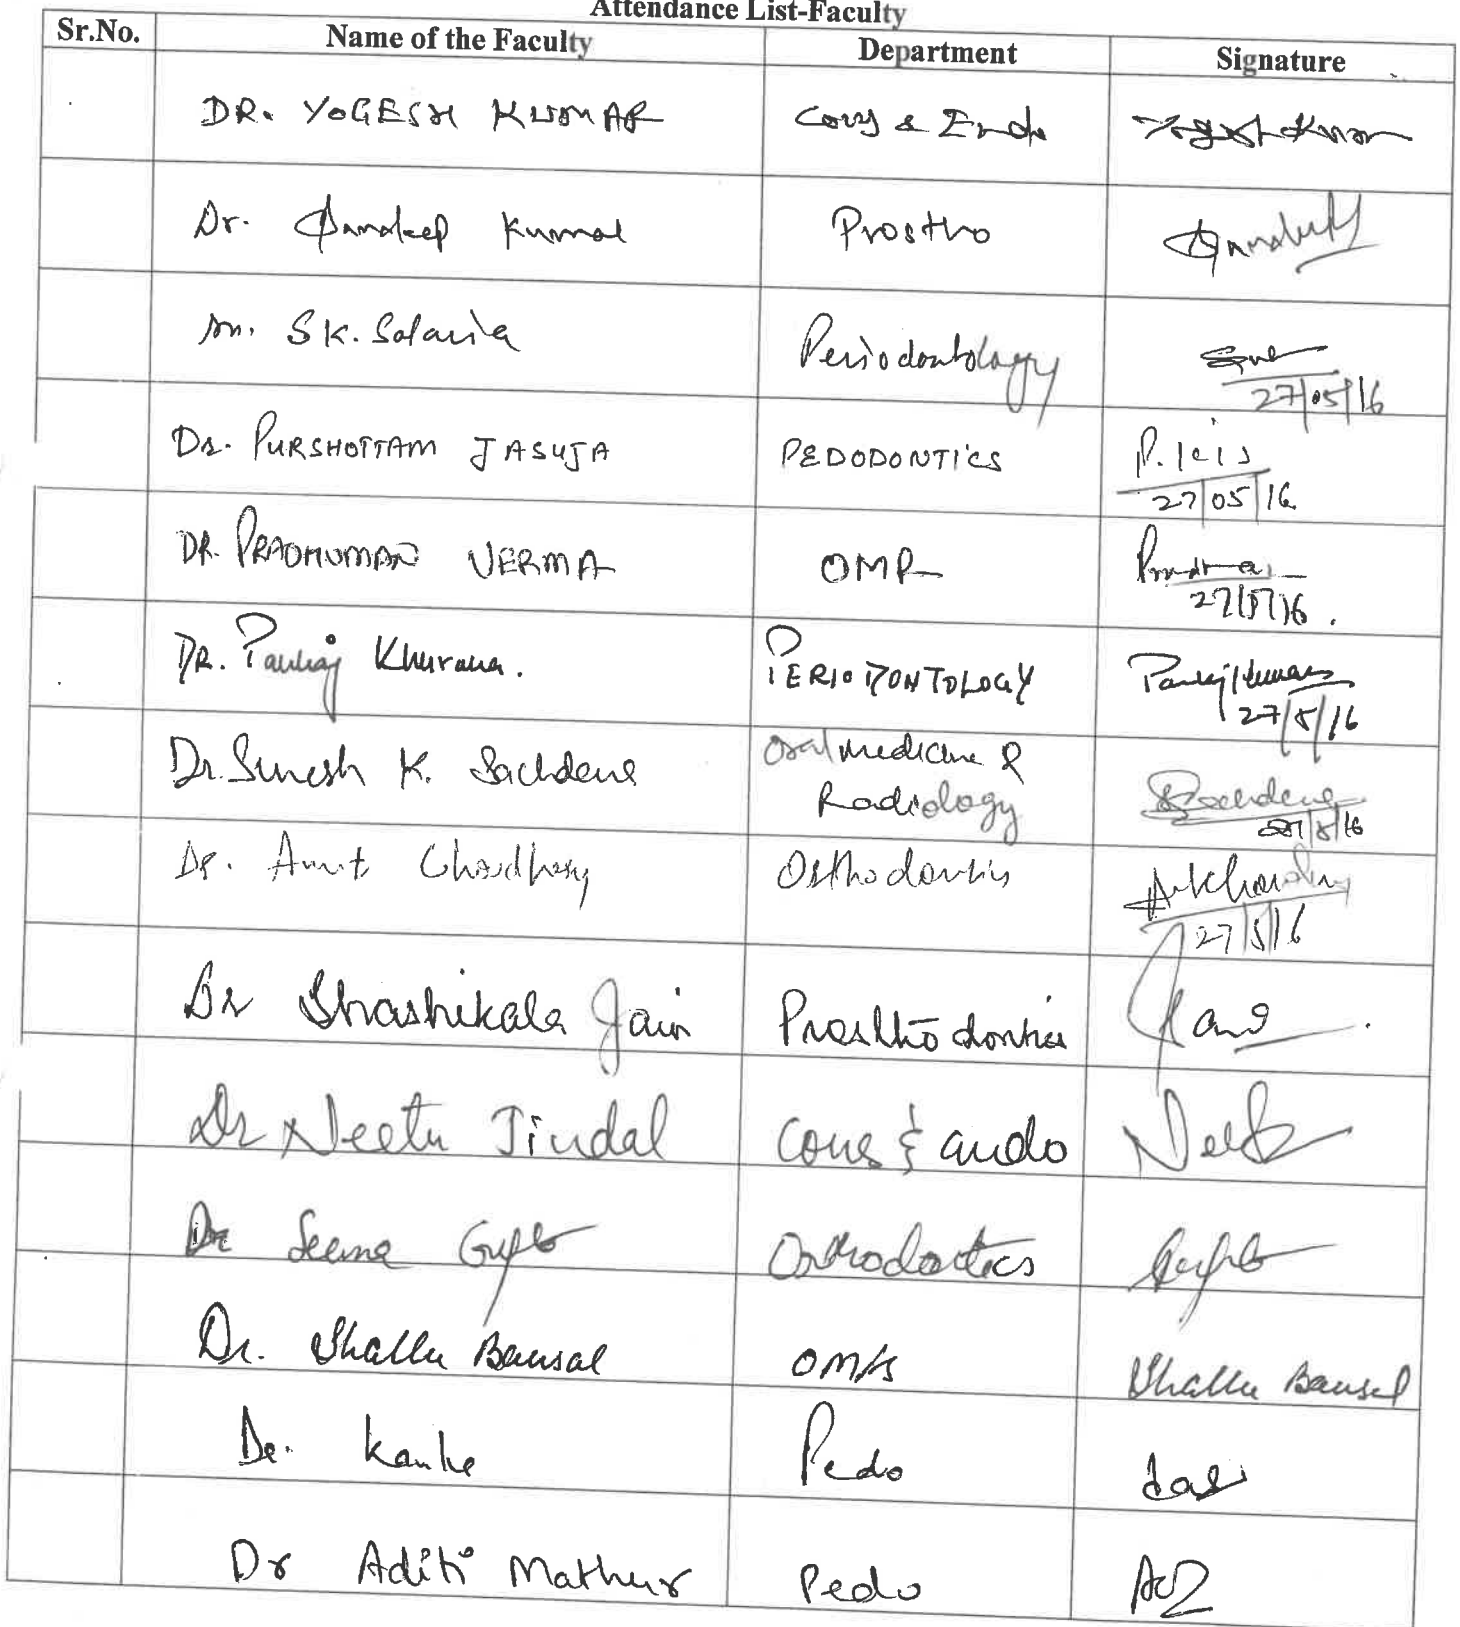 Attendance List-Faculty
Sr.No. Name of the Faculty Department Signature
DR. YOGESH KUMAR Cons & Endo Yogesh Kumar
Dr. Sandeep Kumar Prostho
Dr. SK. Salaria Periodontology
27/05/16
Dr. PURSHOTTAM JASUJA PEDODONTICS
27/05/16
DR. PRADHUMAN VERMA OMR
27/5/16.
DR. Pankaj Khurana. PERIODONTOLOGY Pankaj Khurana
27/5/16
Dr. Suresh K. Sachdeva Oral medicine &
Radiology Sachdeva
27/5/16
Dr. Amit Choudhary Orthodontics
27/5/16
Dr Shashikala Jain Prosthodontics
Dr Neetu Jindal Cons & endo Neetu
Dr Seema Gupta Orthodontics Gupta
Dr. Shallu Bansal OMFS Shallu Bansal
Dr. Pedo
Dr Aditi Mathur Pedo